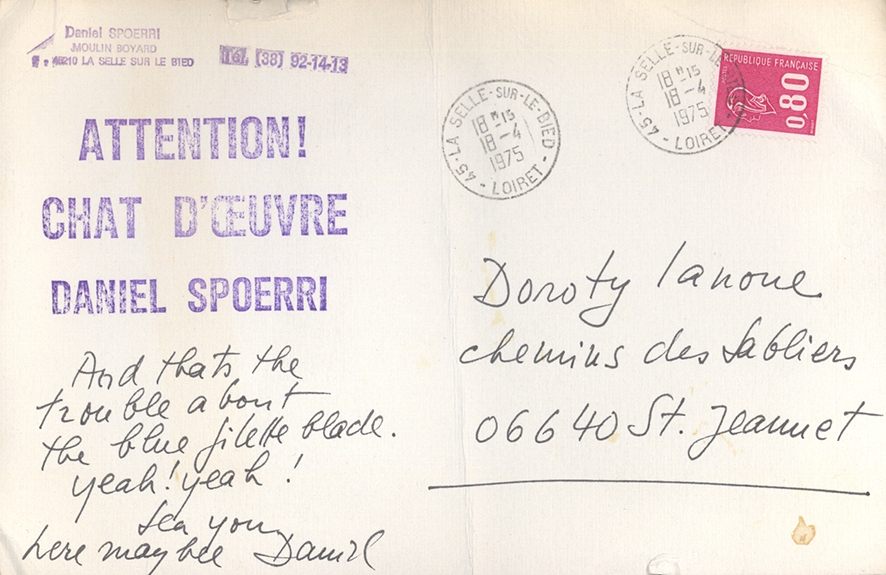 Daniel SPOERRI
MOULIN BOYARD
45210 LA SELLE SUR LE BIED
Tél. (38) 92-14-13
ATTENTION!
CHAT D'ŒUVRE
DANIEL SPOERRI
And thats the
trouble about
the blue jilette blade.
yeah! yeah!
Sea you
here maybee Daniel
45-LA SELLE-SUR-LE-BIED
18H15
18-4
1975
LOIRET
45-LA SELLE-SUR-LE
18H15
18-4
1975
LOIRET
REPUBLIQUE FRANÇAISE
0,80
Doroty Ianone
chemins des Sabliers
06640 St. Jeannet